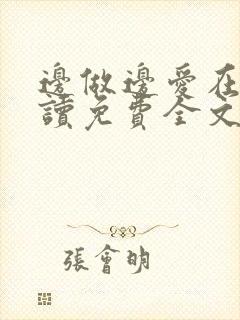 邊做邊愛在
讀免費全文
張會明